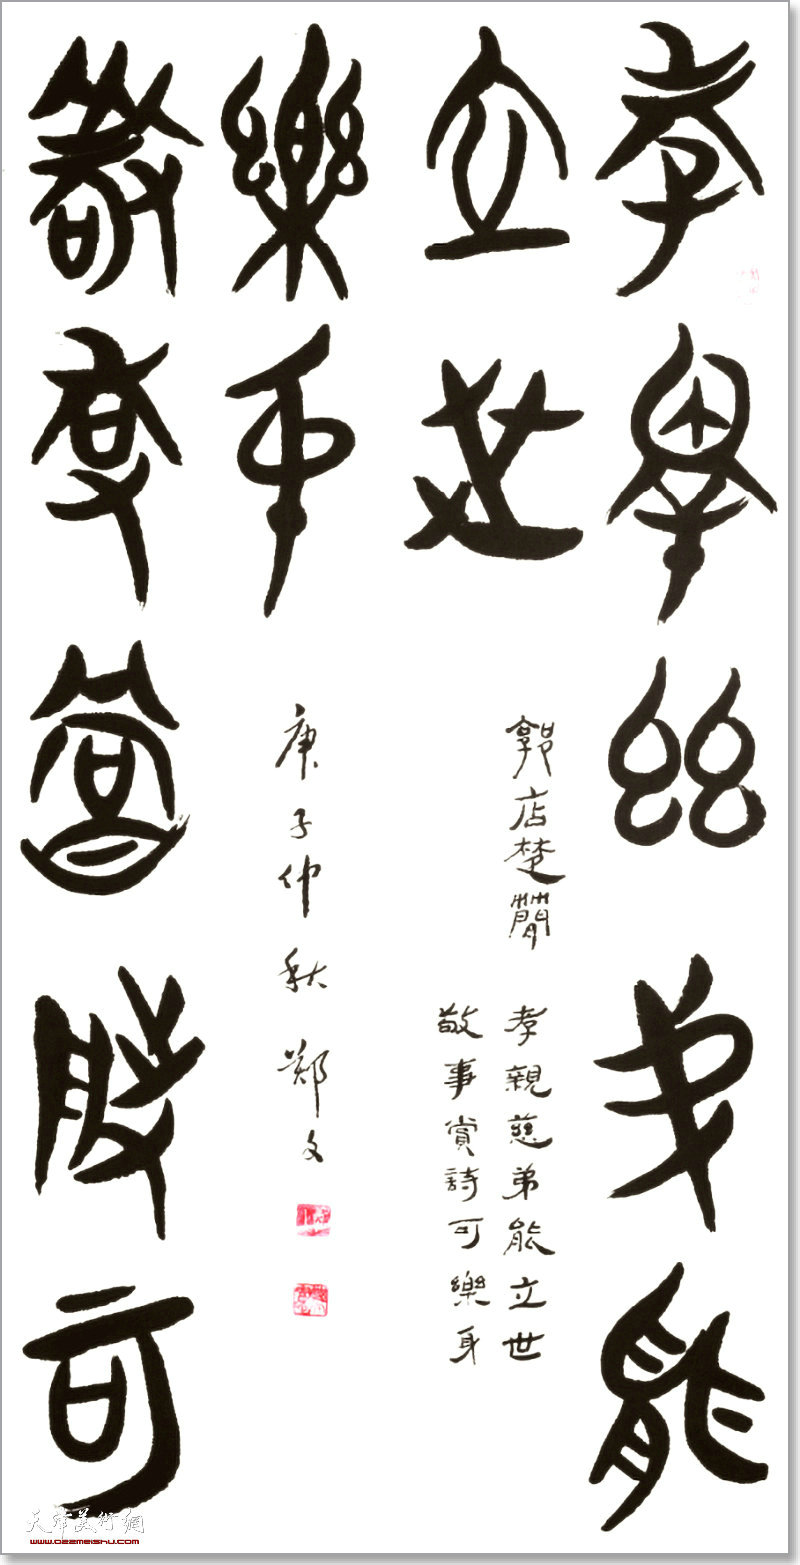 孝親慈弟能
立世
敬事賞詩可
樂身
郭店楚簡
孝親慈弟能立世
敬事賞詩可樂身
庚子仲秋 鄭文
天津美術網
www.022meishu.com